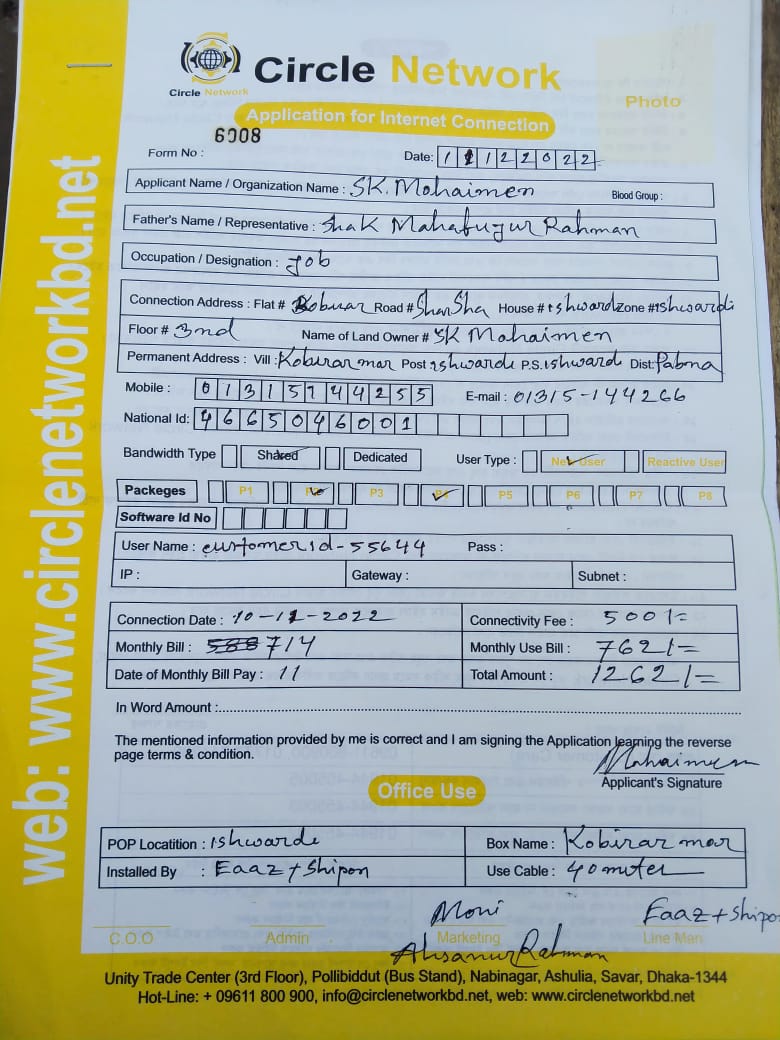 Circle Network
Circle Network
Photo
Application for Internet Connection
6008
Form No :
Date: 11122022
Applicant Name / Organization Name : SK. Mohaimen Blood Group :
Father's Name / Representative : Shak Mahabugur Rahman
Occupation / Designation : Job
Connection Address : Flat # Road # ShanSha House # Ishwardi Zone # Ishwardi
Floor # 3nd Name of Land Owner # SK Mohaimen
Permanent Address : Vill : Kobirar mor Post Ishwardi P.S. Ishwardi Dist: Pabna
Mobile : E-mail : 01315-144266
National Id: 4665046001
Bandwidth Type Shared Dedicated User Type : New User Reactive User
Packeges P1 P3 P4 P5 P6 P7 P8
Software Id No
User Name : customer id - 55644 Pass :
IP : Gateway : Subnet :
Connection Date : 10-11-2022 Connectivity Fee : 500/=
Monthly Bill : 714 Monthly Use Bill : 762/=
Date of Monthly Bill Pay : 11 Total Amount : 1262/=
In Word Amount :
The mentioned information provided by me is correct and I am signing the Application learning the reverse
page terms & condition.
Mohaimen
Applicant's Signature
Office Use
POP Locatition : Ishwardi Box Name : Kobirar mor
Installed By : Eaaz + Shipon Use Cable : 40 miter
Moni Eaaz + Shipon
C.O.O Admin Marketing Line Man
Ahsanur Rahman
Unity Trade Center (3rd Floor), Pollibiddut (Bus Stand), Nabinagar, Ashulia, Savar, Dhaka-1344
Hot-Line: + 09611 800 900, info@circlenetworkbd.net, web: www.circlenetworkbd.net
web: www.circlenetworkbd.net